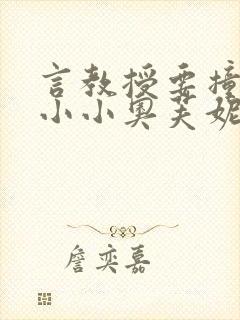 言教授要撞
小小奥芙妮
詹奕嘉